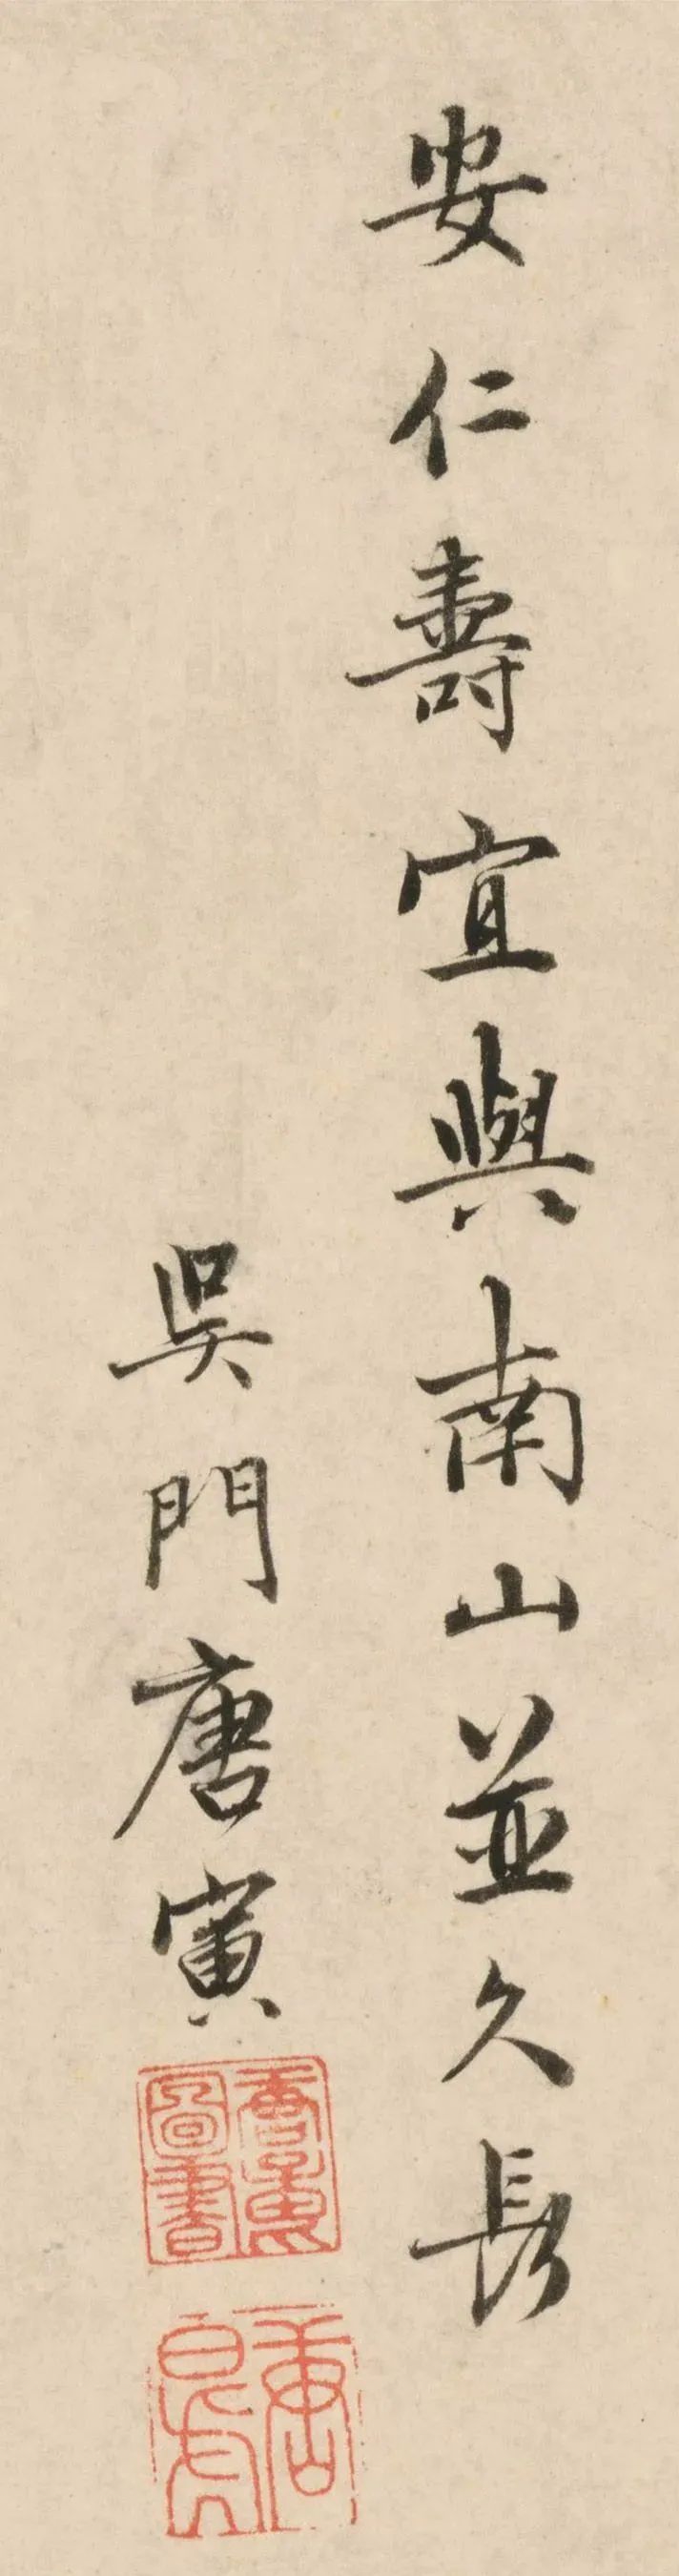 安仁壽宜與南山並久長
吳門唐寅
唐寅圖書
唐白虎